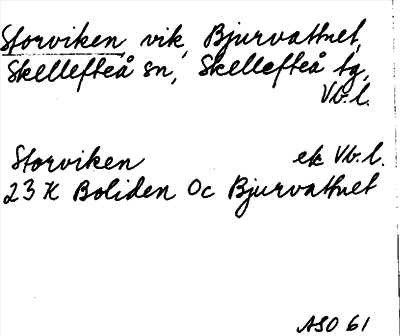 Storviken, vik, Bjurvattnet,
Skellefteå sn, Skellefteå tg,
Vb.l.
Storviken ek Vb.l.
23 K Boliden Oc Bjurvattnet
ASO 61